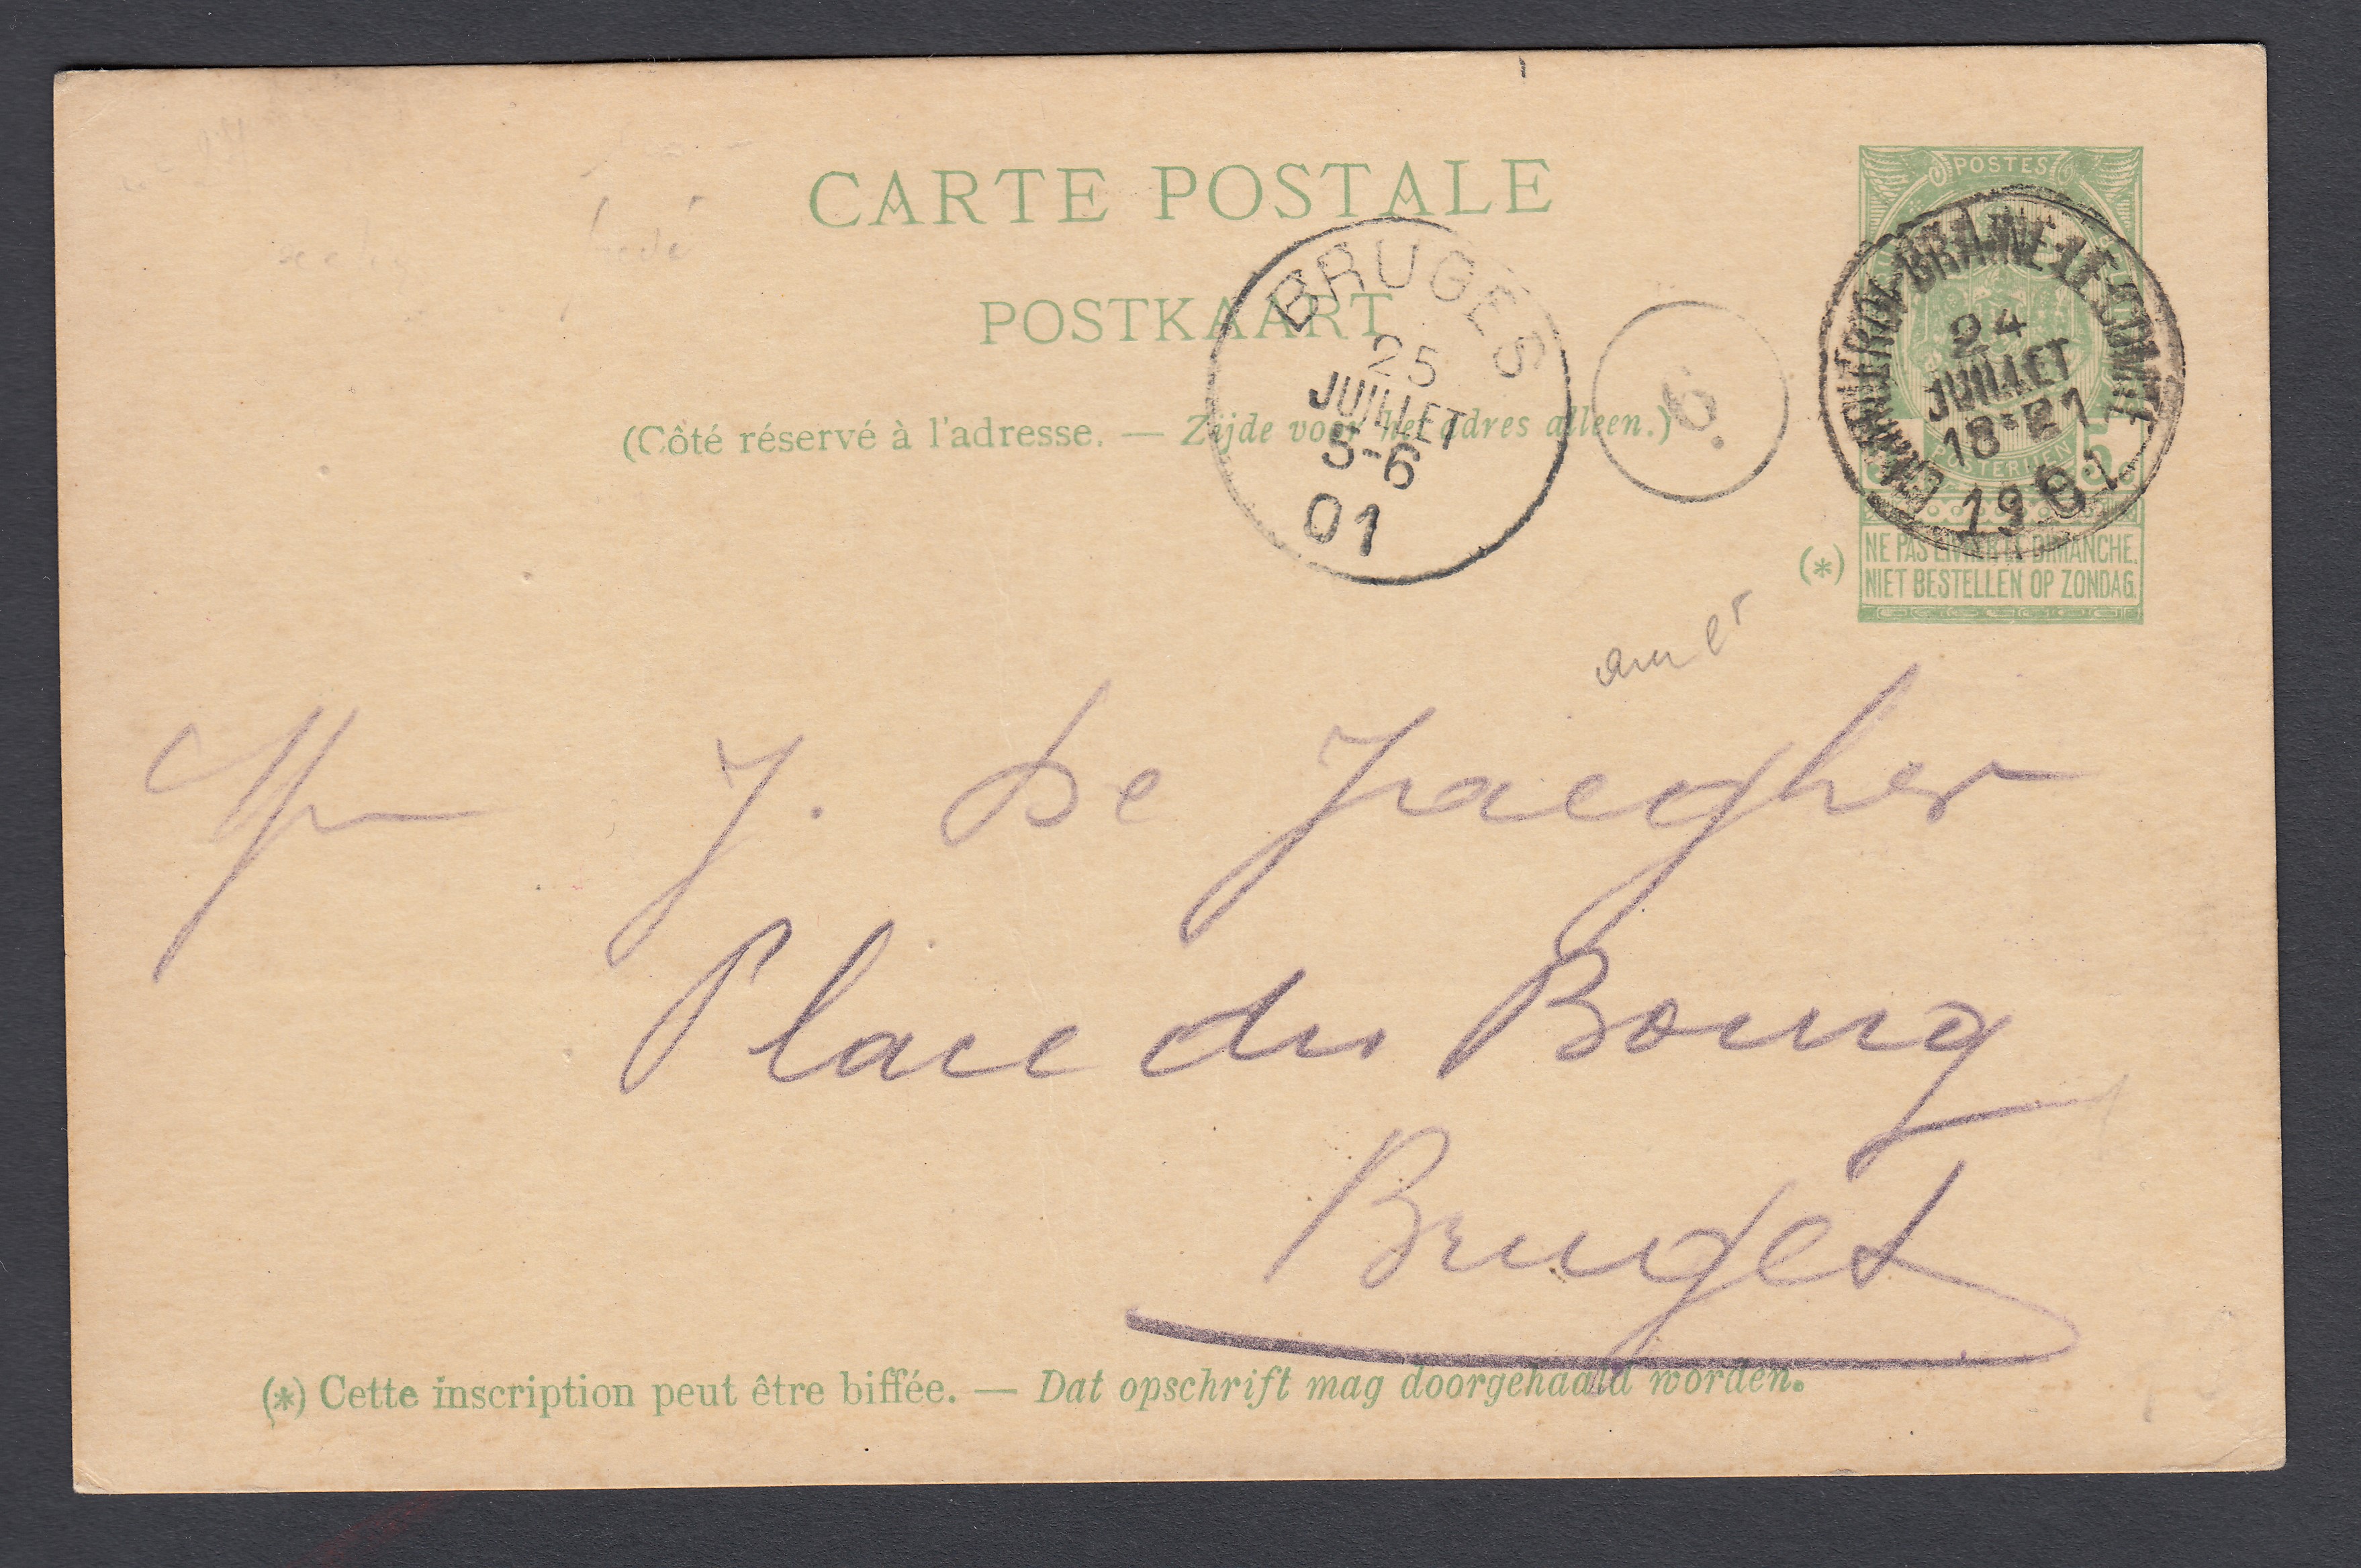 CARTE POSTALE
POSTKAART
(Côté réservé à l'adresse. — Zijde voor het adres alleen.)
BRUGES
25
JUILLET
5-6
01
6.
POSTES
CHARLEROI-BRAINE-LE-COMTE
24
JUILLET
18-21
1901
POSTERIJEN
5
(*)
NE PAS LIVRER LE DIMANCHE.
NIET BESTELLEN OP ZONDAG.
J. De Jaegher
Place du Bourg
Bruges
(*) Cette inscription peut être biffée. — Dat opschrift mag doorgehaald worden.